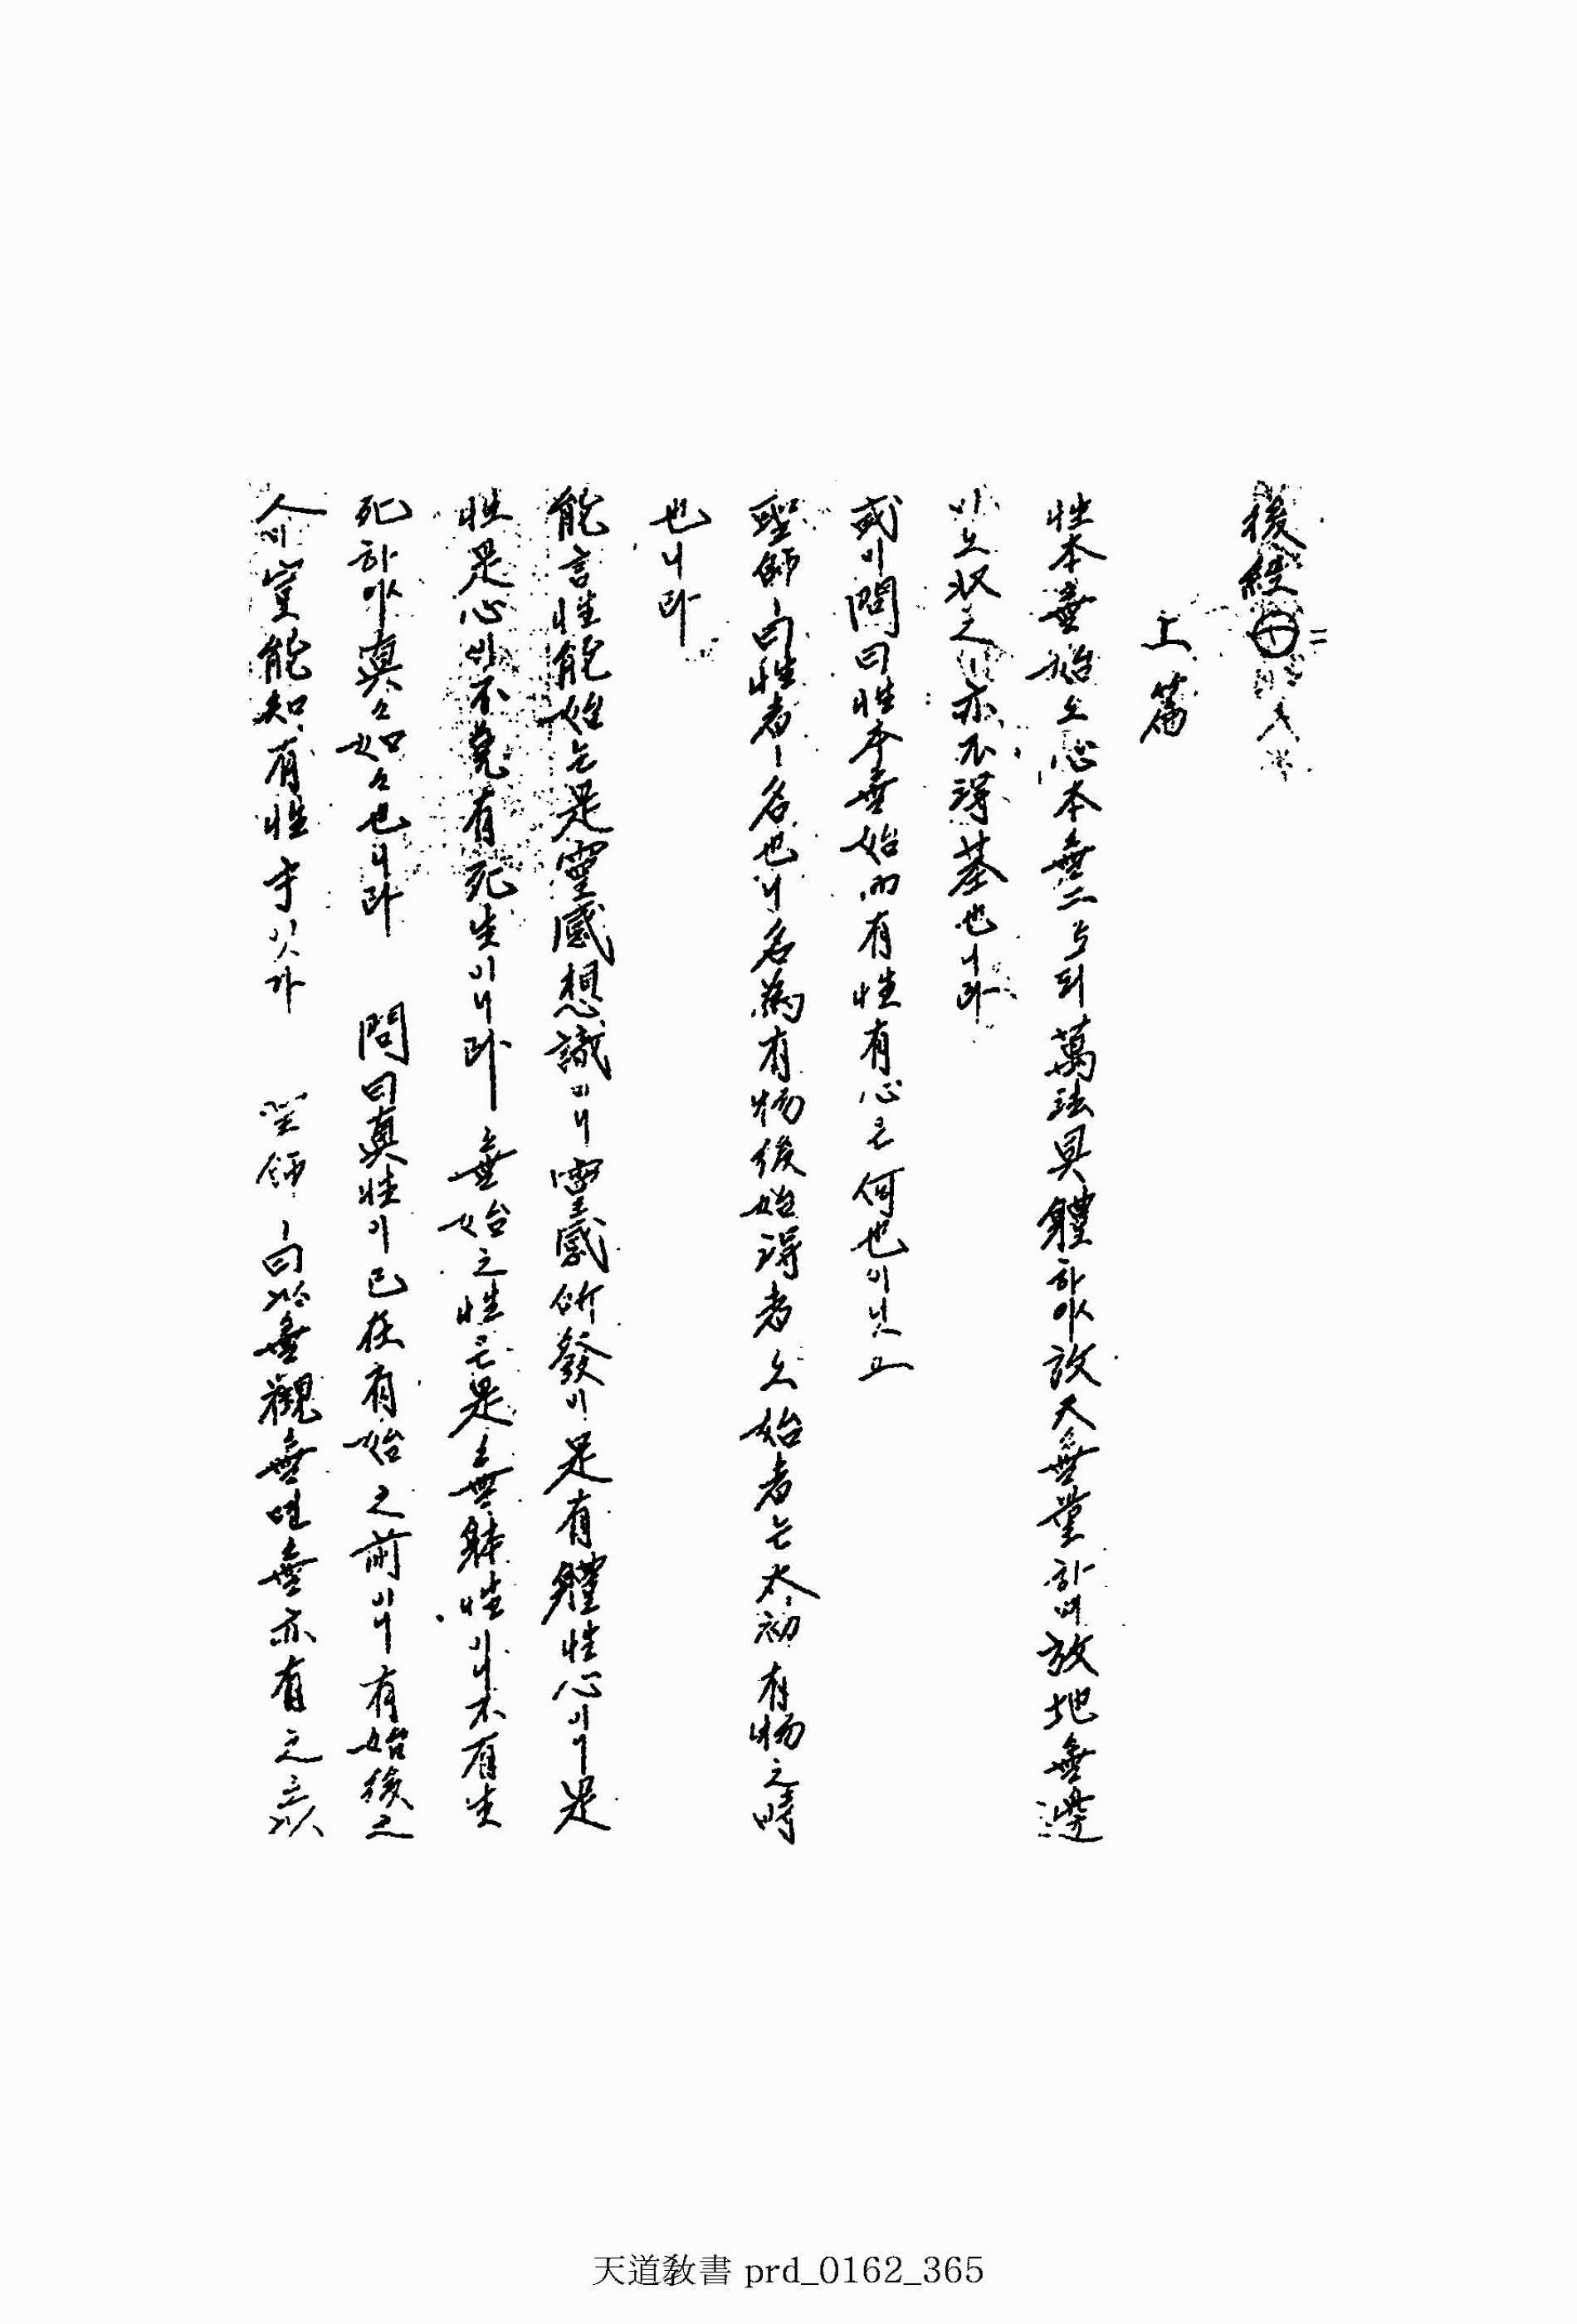 後經
上篇
性本無始오心本無二로되萬法具體하야放天無量하며放地無邊
이오收之亦不得基也니라
或이問曰性本無始而有性有心은何也이닛고
聖師ㅣ曰性者ㅣ名也니名為有物後始得者오始者는太初有物之時
也니라
能言性能始는是靈感想識이니靈感所發이是有體性心이니是
性是心이不免有死生이니라 無始之性은是無躰性이니不有生
死하야眞々如々也니라 問曰眞性이已在有始之前이니有始後之
人이豈能知有性乎잇가 聖師ㅣ曰以無觀無면無亦有之오以
天道敎書 prd_0162_365